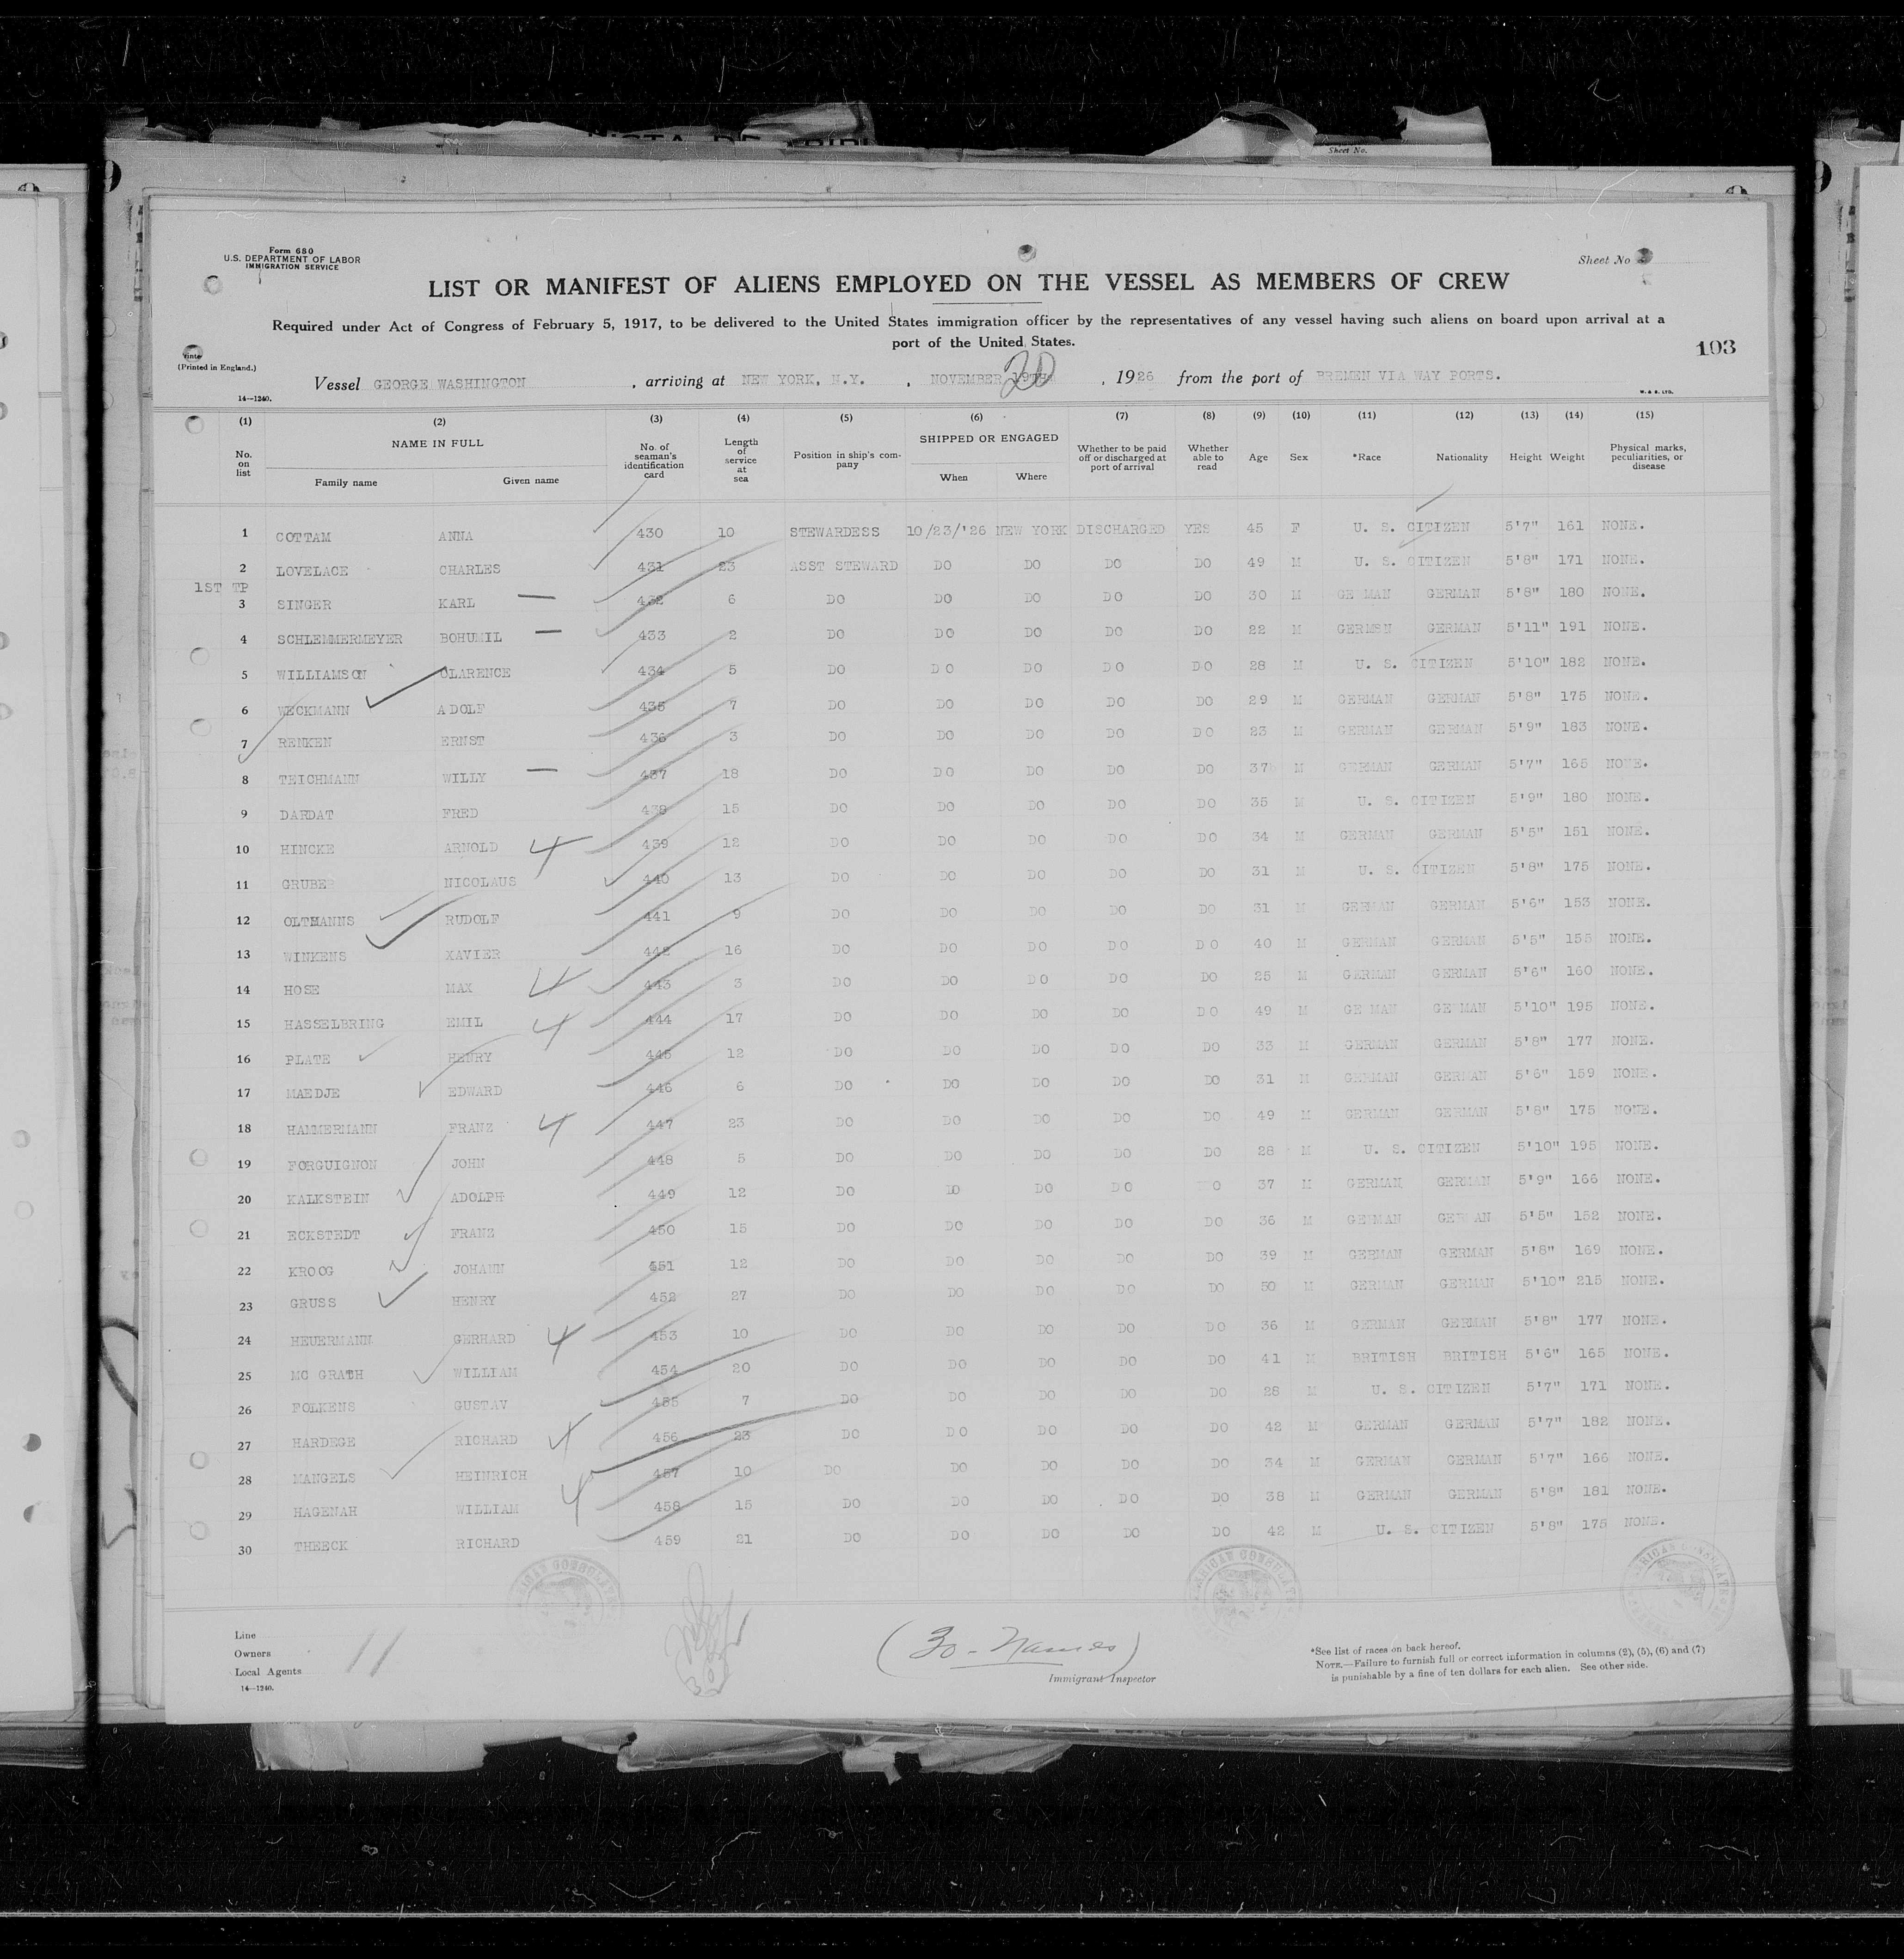 Sheet No.
Form 680
U.S. DEPARTMENT OF LABOR
IMMIGRATION SERVICE
Sheet No
LIST OR MANIFEST OF ALIENS EMPLOYED ON THE VESSEL AS MEMBERS OF CREW
Required under Act of Congress of February 5, 1917, to be delivered to the United States immigration officer by the representatives of any vessel having such aliens on board upon arrival at a
port of the United States.
103
(Printed in England.)
Vessel GEORGE WASHINGTON , arriving at NEW YORK, N.Y. , NOVEMBER 19TH 20 , 1926 from the port of BREMEN VIA WAY PORTS.
14—1240. W. & S. LTD.
(1) (2) (3) (4) (5) (6) (7) (8) (9) (10) (11) (12) (13) (14) (15)
No. on list NAME IN FULL Family name Given name No. of seaman's identification card Length of service at sea Position in ship's company SHIPPED OR ENGAGED When Where Whether to be paid off or discharged at port of arrival Whether able to read Age Sex *Race Nationality Height Weight Physical marks, peculiarities, or disease
1 COTTAM ANNA 430 10 STEWARDESS 10/23/'26 NEW YORK DISCHARGED YES 45 F U. S. CITIZEN 5'7" 161 NONE.
2 LOVELACE CHARLES 431 23 ASST STEWARD DO DO DO DO 49 M U. S. CITIZEN 5'8" 171 NONE.
1ST TP
3 SINGER KARL — 432 6 DO DO DO DO DO 30 M GE MAN GERMAN 5'8" 180 NONE.
4 SCHLEMMERMEYER BOHUMIL — 433 2 DO DO DO DO DO 22 M GERMSN GERMAN 5'11" 191 NONE.
5 WILLIAMSON CLARENCE 434 5 DO DO DO DO DO 28 M U. S. CITIZEN 5'10" 182 NONE.
6 WECKMANN ADOLF 435 7 DO DO DO DO DO 29 M GERMAN GERMAN 5'8" 175 NONE.
7 RENKEN ERNST 436 3 DO DO DO DO DO 23 M GERMAN GERMAN 5'9" 183 NONE.
8 TEICHMANN WILLY — 437 18 DO DO DO DO DO 37 M GERMAN GERMAN 5'7" 165 NONE.
9 DARDAT FRED 438 15 DO DO DO DO DO 35 M U. S. CITIZEN 5'9" 180 NONE.
10 HINCKE ARNOLD 4 439 12 DO DO DO DO DO 34 M GERMAN GERMAN 5'5" 151 NONE.
11 GRUBER NICOLAUS 440 13 DO DO DO DO DO 31 M U. S. CITIZEN 5'8" 175 NONE.
12 OLTMANNS RUDOLF 441 9 DO DO DO DO DO 31 M GERMAN GERMAN 5'6" 153 NONE.
13 WINKENS XAVIER 442 16 DO DO DO DO DO 40 M GERMAN GERMAN 5'5" 155 NONE.
14 HOSE MAX 4 443 3 DO DO DO DO DO 25 M GERMAN GERMAN 5'6" 160 NONE.
15 HASSELBRING EMIL 4 444 17 DO DO DO DO DO 49 M GE MAN GE MAN 5'10" 195 NONE.
16 PLATE HENRY 445 12 DO DO DO DO DO 33 M GERMAN GERMAN 5'8" 177 NONE.
17 MAEDJE EDWARD 446 6 DO DO DO DO DO 31 M GERMAN GERMAN 5'6" 159 NONE.
18 HAMMERMANN FRANZ 4 447 23 DO DO DO DO DO 49 M GERMAN GERMAN 5'8" 175 NONE.
19 FORGUIGNON JOHN 448 5 DO DO DO DO DO 28 M U. S. CITIZEN 5'10" 195 NONE.
20 KALKSTEIN ADOLPH 449 12 DO DO DO DO O 37 M GERMAN GERMAN 5'9" 166 NONE.
21 ECKSTEDT FRANZ 450 15 DO DO DO DO DO 36 M GERMAN GERMAN 5'5" 152 NONE.
22 KROOG JOHANN 451 12 DO DO DO DO DO 39 M GERMAN GERMAN 5'8" 169 NONE.
23 GRUSS HENRY 452 27 DO DO DO DO DO 50 M GERMAN GERMAN 5'10" 215 NONE.
24 HEUERMANN GERHARD 4 453 10 DO DO DO DO DO 36 M GERMAN GERMAN 5'8" 177 NONE.
25 MC GRATH WILLIAM 454 20 DO DO DO DO DO 41 M BRITISH BRITISH 5'6" 165 NONE.
26 FOLKENS GUSTAV 455 7 DO DO DO DO DO 28 M U. S. CITIZEN 5'7" 171 NONE.
27 HARDEGE RICHARD 4 456 23 DO DO DO DO DO 42 M GERMAN GERMAN 5'7" 182 NONE.
28 MANGELS HEINRICH 457 10 DO DO DO DO DO 34 M GERMAN GERMAN 5'7" 166 NONE.
29 HAGENAH WILLIAM 4 458 15 DO DO DO DO DO 38 M GERMAN GERMAN 5'8" 181 NONE.
30 THEECK RICHARD 459 21 DO DO DO DO DO 42 M U. S. CITIZEN 5'8" 175 NONE.
Line
Owners
Local Agents
14—1240.
11
(30 - Names)
Immigrant Inspector
*See list of races on back hereof.
NOTE.—Failure to furnish full or correct information in columns (2), (5), (6) and (7)
is punishable by a fine of ten dollars for each alien. See other side.